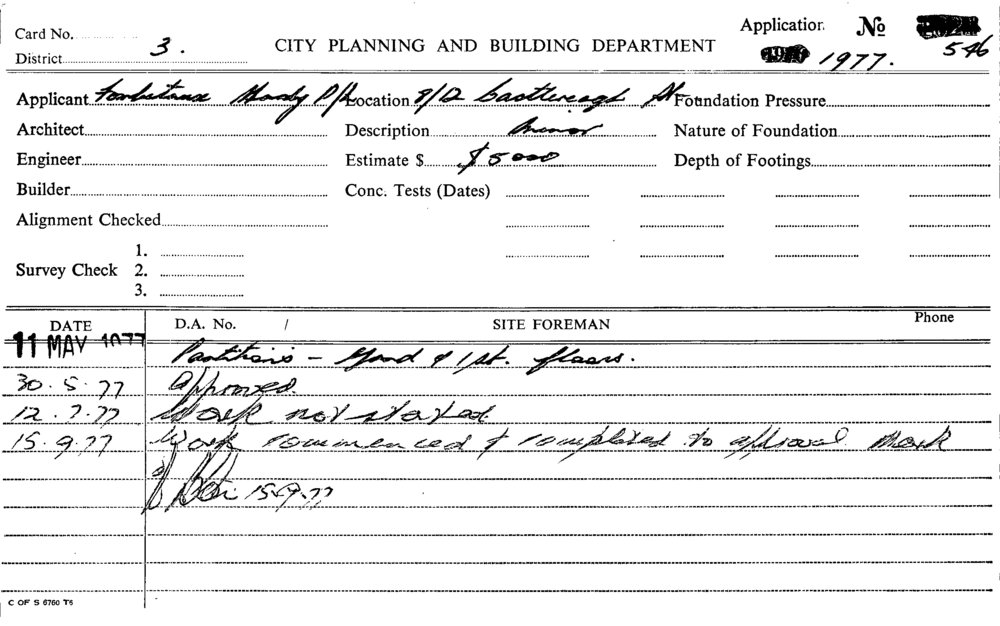 Card No. Application No
District 3. CITY PLANNING AND BUILDING DEPARTMENT 1977. 546
Applicant P/L Location 8/12 Castlereagh St Foundation Pressure
Architect Description Minor Nature of Foundation
Engineer Estimate $ $5000 Depth of Footings
Builder Conc. Tests (Dates)
Alignment Checked
1.
Survey Check 2.
3.
DATE D.A. No. / SITE FOREMAN Phone
11 MAY 1977 Partitions - Grnd & 1st. floors.
30.5.77 Approved.
12.7.77 Work not started
15.9.77 Work commenced & completed to approval Mark
off 15.9.77
C OF S 6760 T5